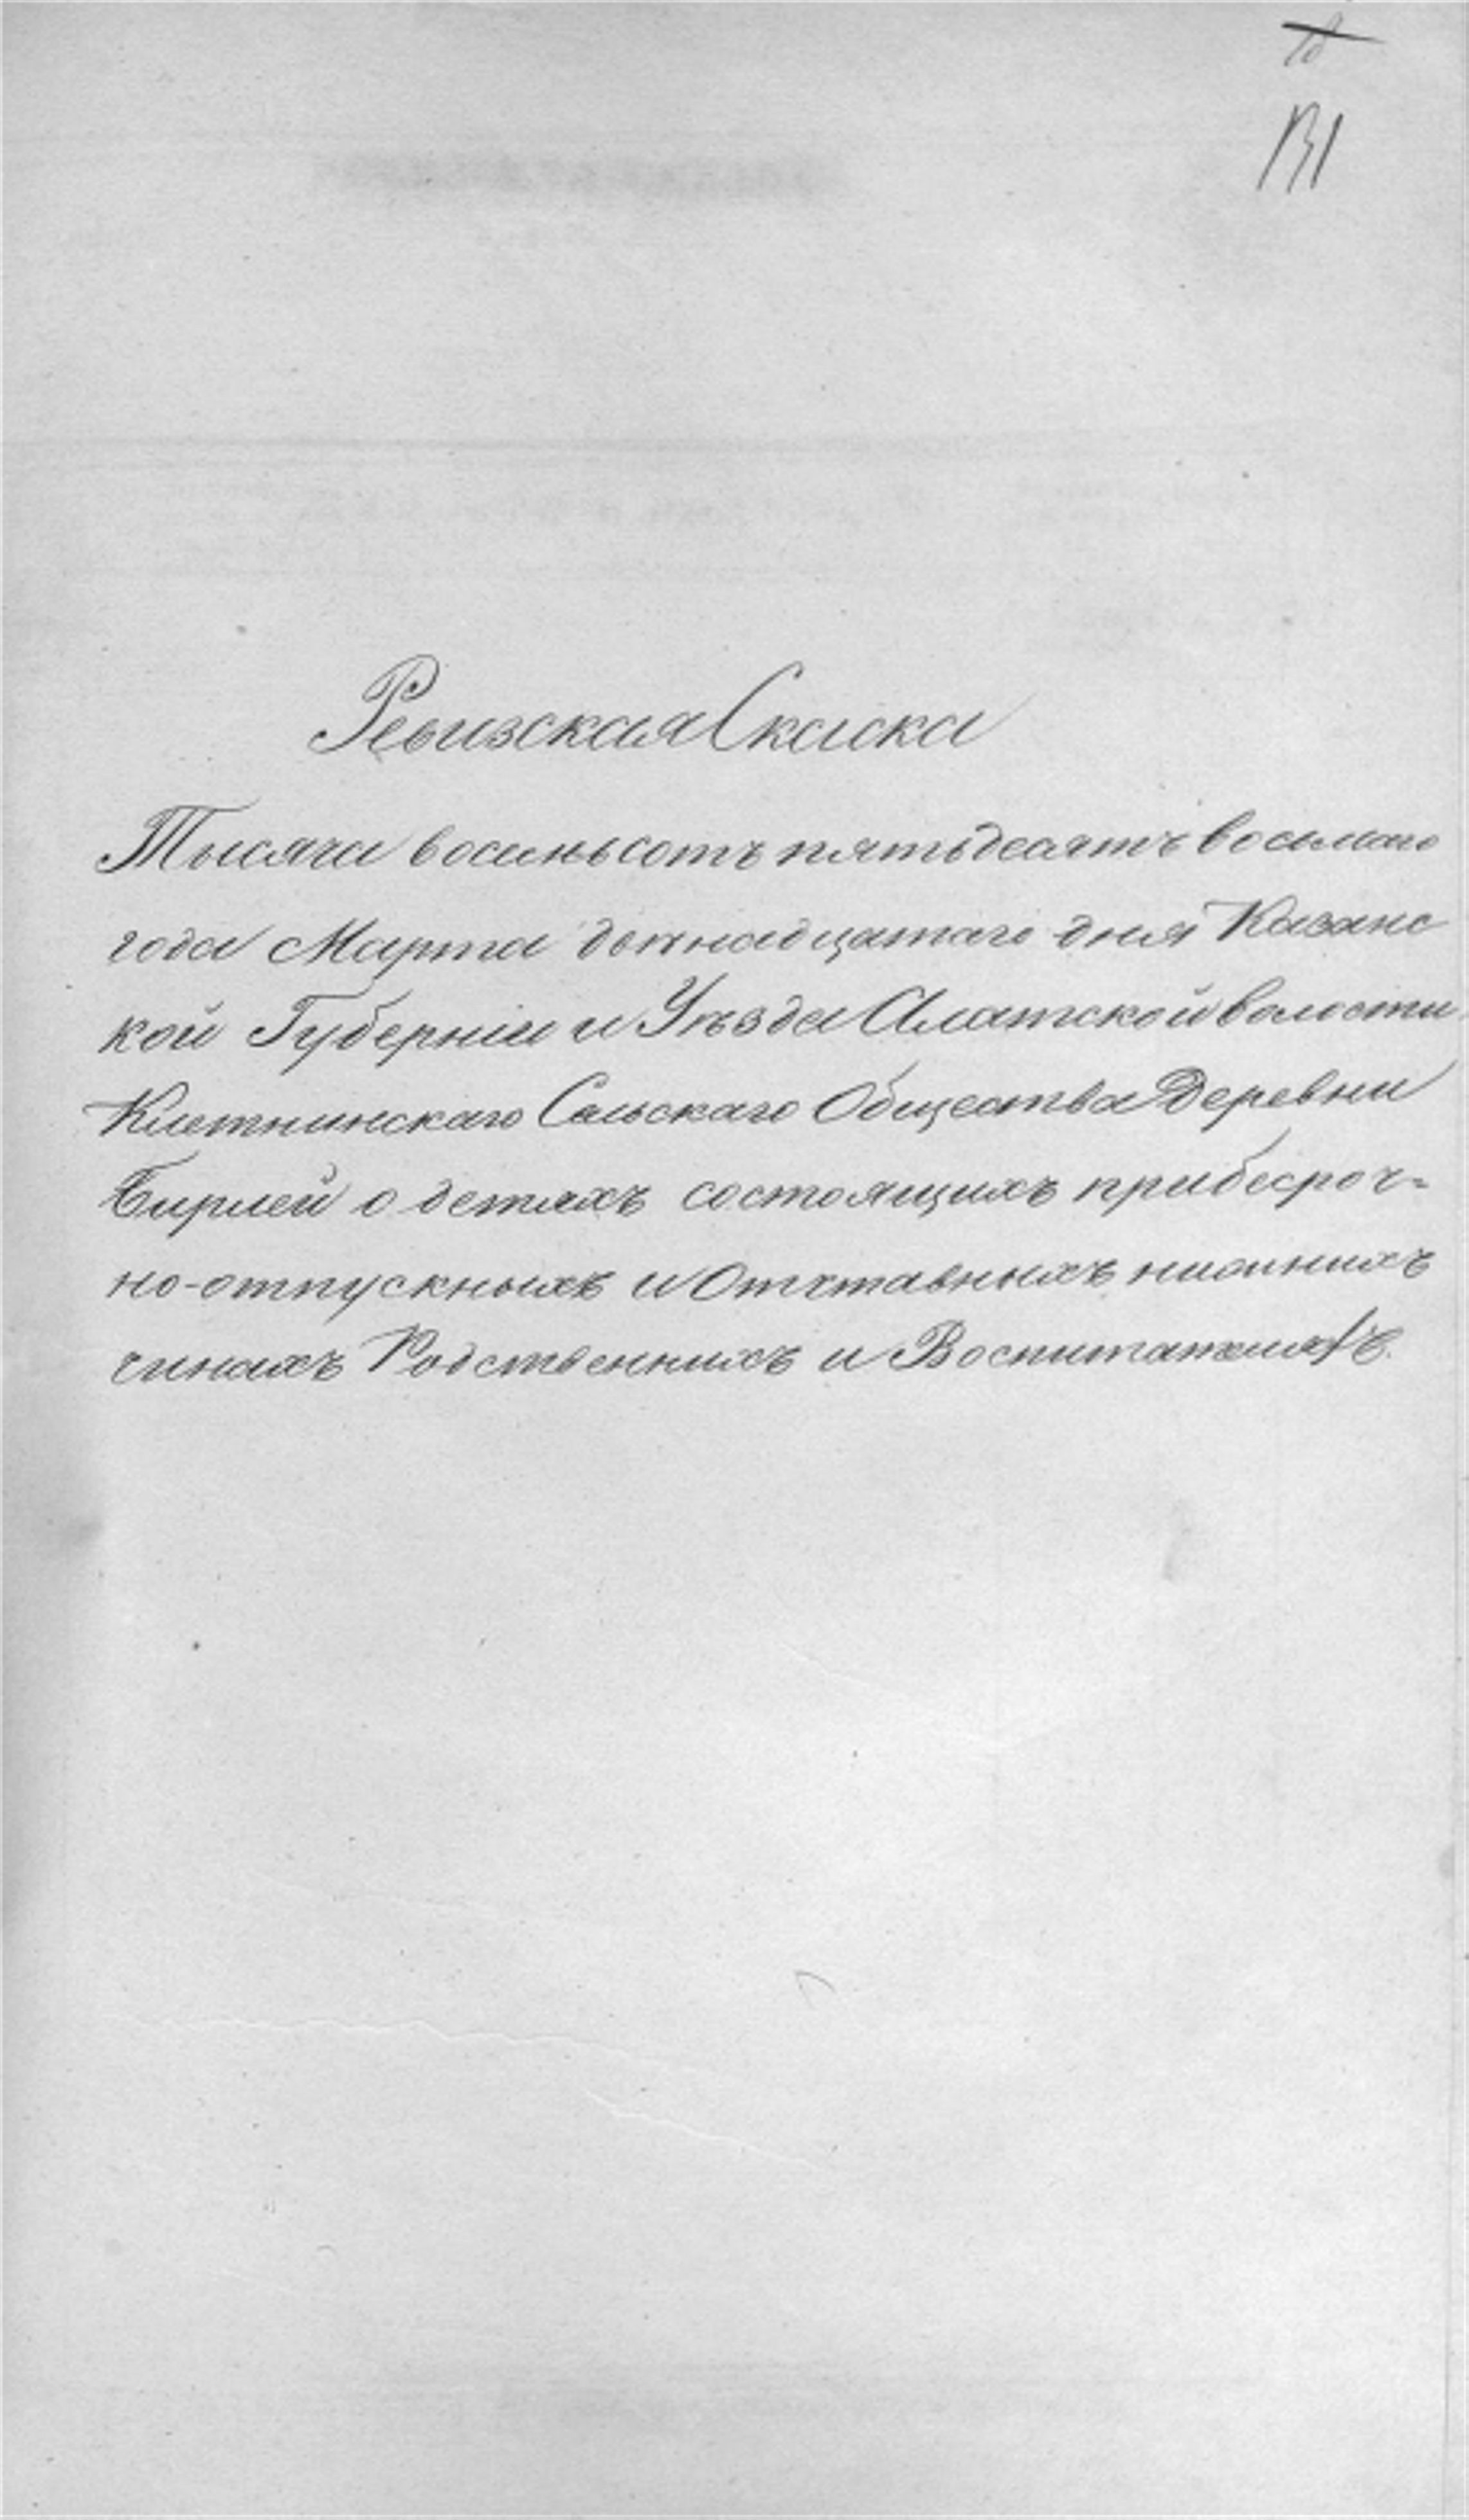 131
Ревизская Скаска
Тысячи восемьсотъ пятьдесятъ восьмаго
года Марта двенадцатаго дня Казанс
кой Губерніи и Уѣзда Алатской волости
Клетнинскаго Сельскаго Общества Деревни
Бирлей о детяхъ состоящихъ прибесроч-
но-отпускныхъ и Отставныхъ нисшихъ
чинахъ Родственникъ и Воспитателяхъ.